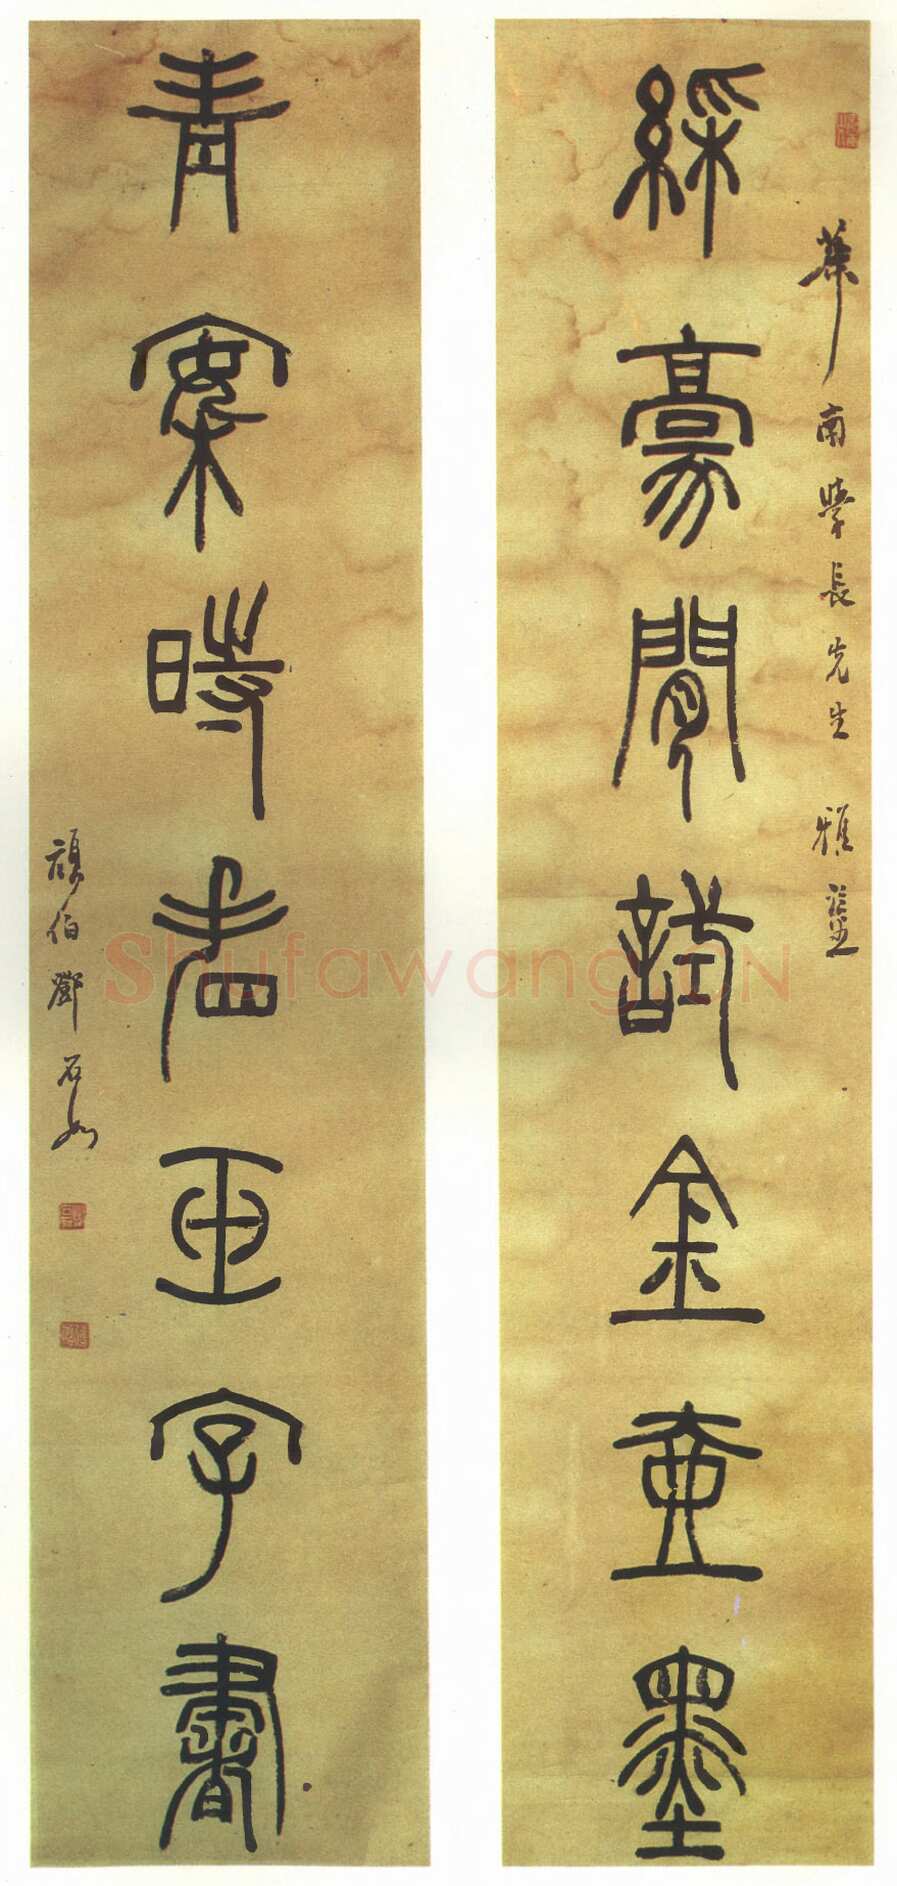 華南學長先生 雅鑒
綵豪閒試金壺墨
青案時看玉字書
頑伯鄧石如
Shufawang.CN